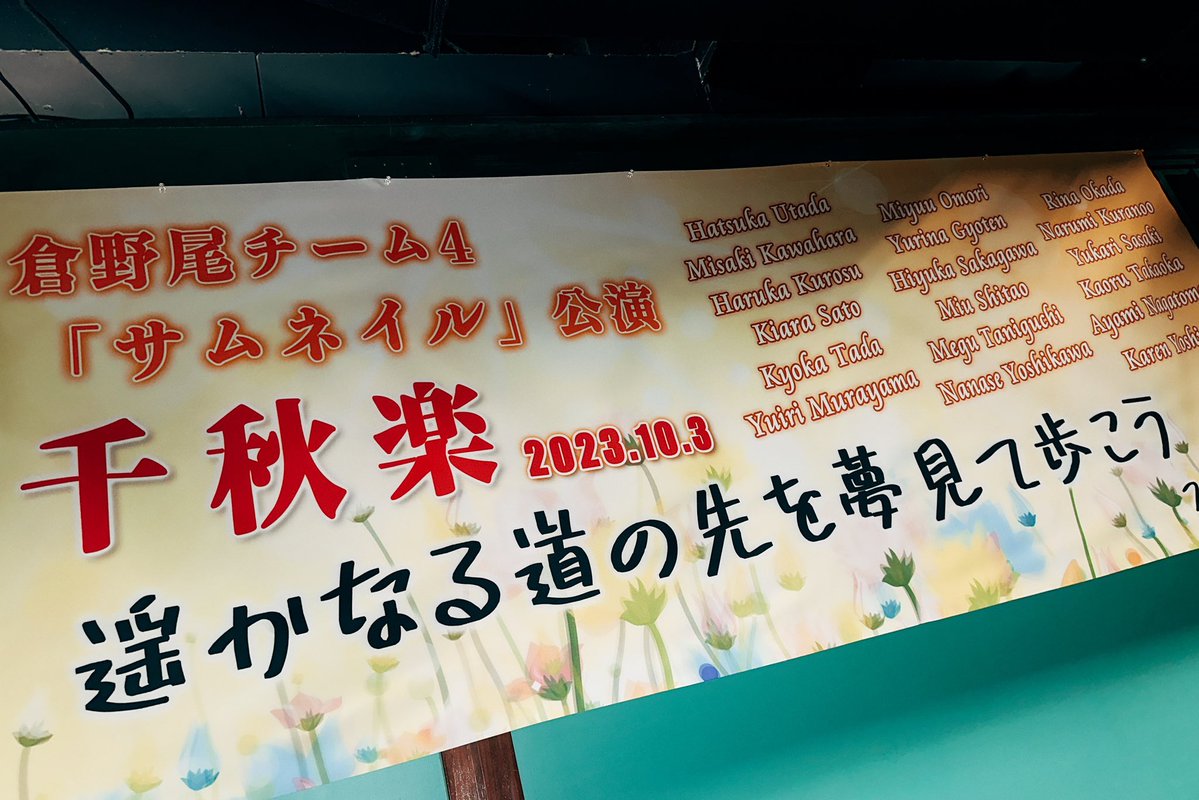 倉野尾チーム4
「サムネイル」公演
千秋楽 2023.10.3
Hatsuka Utada
Misaki Kawahara
Haruka Kurosu
Kiara Sato
Kyoka Tada
Yuiri Murayama
Miyuu Omori
Yurina Gyoten
Hiyuka Sakagawa
Miu Shitao
Megu Taniguchi
Nanase Yoshikawa
Rina Okada
Narumi Kuranoo
Yukari Sasaki
Kaoru Takaoka
Ayami Nagatomo
Karen
遥かなる道の先を夢見て歩こう